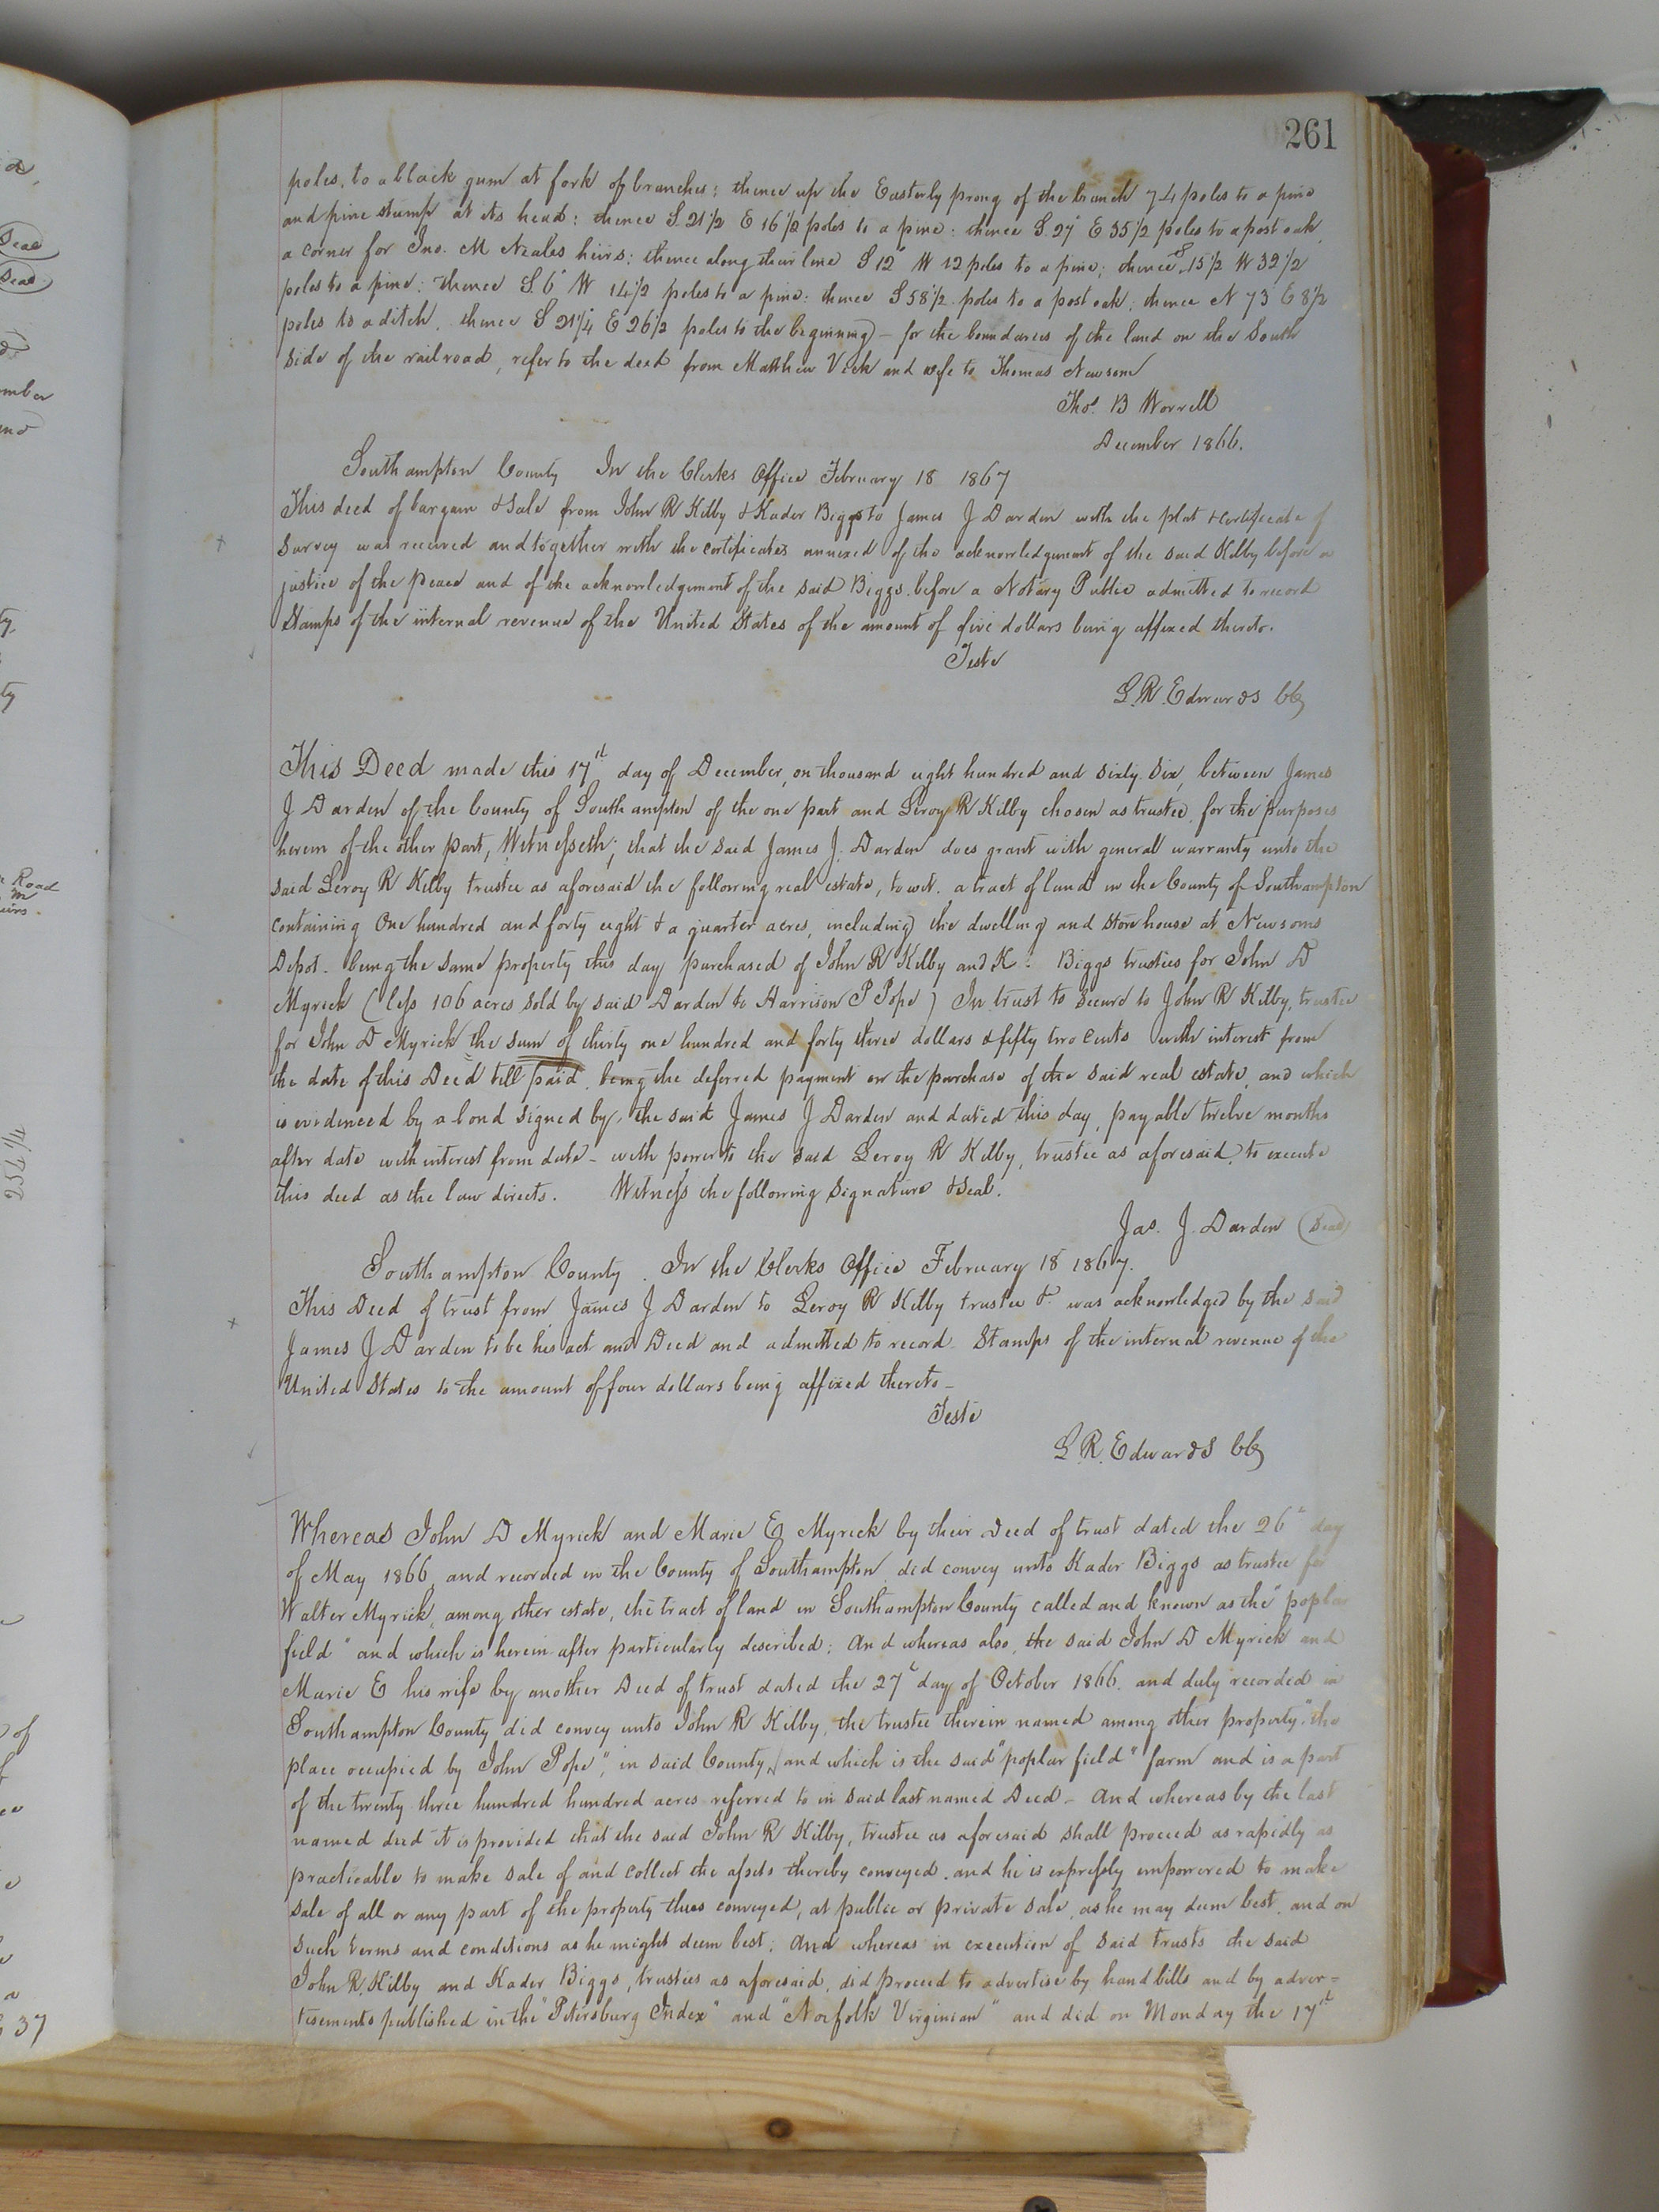 261
poles, to a black gum at fork of branches: thence up the Easterly prong of the branch 74 poles to a pine
and pine stump at its head: thence S. 21 1/2 E 16 1/2 poles to a pine: thence S. 27° E 35 1/2 poles to a post oak,
a corner for Jno. M Neales heirs: thence along their line S 12° W 12 poles to a pine; thence S 15 1/2 W 32 1/2
poles to a pine: thence S. 6° W 14 1/2 poles to a pine: thence S 58 1/2 poles to a post oak: thence N 73 E 8 1/2
poles to a ditch. thence S 21 1/4 E 26 1/2 poles to the beginning) - for the boundaries of the land on the South
side of the railroad, refer to the deed from Matthew Vick and wife to Thomas Newsom
Thos. B Worrell
December 1866.
Southampton County In the Clerks Office February 18 1867
This deed of bargain & Sale from John R Kilby & Kader Biggs to James J Darden with the plat & certificate of
Survey was received and together with the certificates annexed of the acknowledgement of the said Kilby before a
justice of the peace and of the acknowledgement of the said Biggs before a Notary Public admitted to record
Stamps of the internal revenue of the United States of the amount of five dollars being affixed thereto.
Teste
L. R. Edwards CC
This Deed made this 17th day of December, on thousand eight hundred and sixty six, between James
J Darden of the County of Southampton of the one part and Leroy R Kilby chosen as trustee, for the purposes
herein of the other part, Witnesseth; that the said James J. Darden does grant with general warranty unto the
said Leroy R Kilby trustee as aforesaid the following real estate, to wit. a tract of land in the County of Southampton
containing One hundred and forty eight & a quarter acres, including the dwelling and Store house at Newsoms
Depot. being the same property this day purchased of John R Kilby and K. Biggs trustees for John D
Myrick (less 106 acres sold by said Darden to Harrison P Pope) In trust to secure to John R Kilby, trustee
for John D Myrick the sum of thirty one hundred and forty three dollars & fifty two cents with interest from
the date of this Deed till paid, being the deferred payment on the purchase of the said real estate, and which
is evidenced by a bond signed by the said James J Darden and dated this day, payable twelve months
after date with interest from date - with power to the said Leroy R Kilby, trustee as aforesaid, to execute
this deed as the law directs. Witness the following Signature & Seal.
Jas. J. Darden (Seal)
Southampton County. In the Clerks Office February 18 1867.
This Deed of trust from James J Darden to Leroy R Kilby trustee &c was acknowledged by the said
James J Darden to be his act and Deed and admitted to record. Stamps of the internal revenue of the
United States to the amount of four dollars being affixed thereto -
Teste
L. R. Edwards CC
Whereas John D Myrick and Marie E Myrick by their Deed of trust dated the 26th day
of May 1866, and recorded in the County of Southampton, did convey unto Kader Biggs as trustee for
Walter Myrick, among other estate, the tract of land in Southampton County called and known as the "poplar
field" and which is herein after particularly described: And whereas also, the said John D Myrick and
Marie E his wife by another Deed of trust dated the 27th day of October 1866, and duly recorded in
Southampton County did convey unto John R Kilby, the trustee therein named among other property "the
place occupied by John Pope", in said County, and which is the said "poplar field" farm and is a part
of the twenty three hundred hundred acres referred to in said last named Deed - And whereas by the last
named deed it is provided that the said John R Kilby, trustee as aforesaid shall proceed as rapidly as
practicable to make sale of and collect the assets thereby conveyed, and he is expressly empowered to make
sale of all or any part of the property thus conveyed, at public or private sale, as he may deem best, and on
such terms and conditions as he might deem best; And whereas in execution of said trusts the said
John R. Kilby and Kader Biggs, trustees as aforesaid, did proceed to advertise by hand bills and by adver=
tisements published in the "Petersburg Index" and "Norfolk Virginian" and did on Monday the 17th